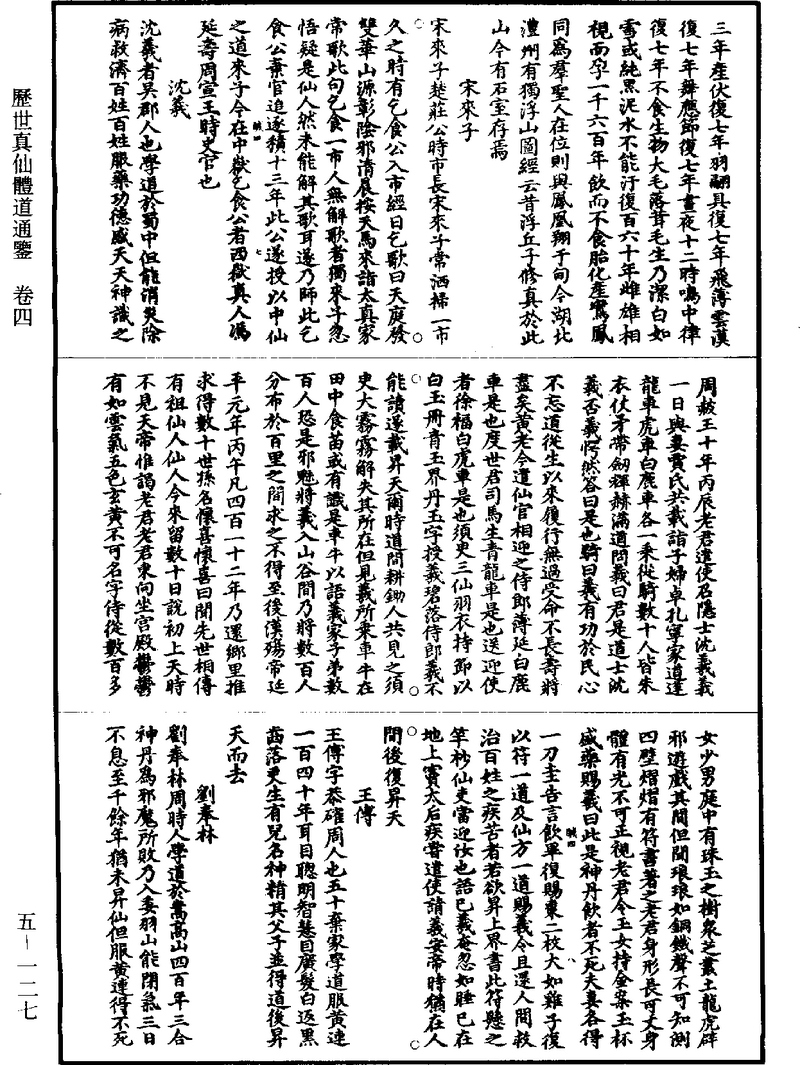 歷世真仙體道通鑒　卷四
五－一二七
三年產伏復七年羽翮具復七年飛薄雲漢
復七年舞應節復七年晝夜十二時鳴中律
復七年不食生物大毛落茸毛生乃潔白如
雪或純黑泥水不能汙復百六十年雌雄相
視而孕一千六百年飲而不食胎化產鸞鳳
同為羣聖人在位則與鳳凰翔于甸今湖北
澧州有獨浮山圖經云昔浮丘子修真於此
山今有石室存焉
宋來子
宋來子楚莊公時市長宋來子常洒掃一市
久之時有乞食公入市經日乞歌曰天庭發
雙華山源彰陰邪清晨按天馬來詣太真家
常歌此句乞食一市人無解歌者獨來子忽
悟疑是仙人然未能解其歌耳遂乃師此乞
食公棄官追逐積十三年此公遂授以中仙
之道來子今在中嶽乞食公者西嶽真人馮
延壽周宣王時史官也
沈羲
沈羲者吳郡人也學道於蜀中但能消災除
病救濟百姓百姓服藥功德感天天神識之
周赧王十年丙辰老君遣使召隱士沈羲羲
一日與妻賈氏共載詣子婦卓孔寧家道逢
龍車虎車白鹿車各一乘從騎數十人皆朱
衣仗矛帶劒輝赫滿道問羲曰君是道士沈
羲否羲愕然答曰是也騎曰羲有功於民心
不忘道從生以來復行無過受命不長壽將
盡矣黃老今遣仙官相迎之侍郎薄延白鹿
車是也度世君司馬生青龍車是也送迎使
者徐福白虎車是也須臾三仙羽衣持節以
白玉冊青玉界丹玉字授羲碧落侍郎羲不
能讀遂載昇天爾時道間耕鋤人共見之須
臾大霧霧解失其所在但見羲所乘車牛在
田中食苗或有識是車牛以語羲家子弟數
百人恐是邪魅將羲入山谷間乃將數百人
分布於百里之間求之不得至後漢殤帝延
平元年丙午凡四百一十二年乃還鄉里推
求得數十世孫名懷喜懷喜曰聞先世相傳
有祖仙人仙人今來留數十日說初上天時
不見天帝惟謁老君老君東向坐宮殿鬱鬱
有如雲氣五色玄黃不可名字侍從數百多
女少男庭中有珠玉之樹眾芝叢土龍虎辟
邪遊戲其間但聞琅琅如銅鐵聲不可知側
四壁熠熠有符書著之老君身形長可丈身
體有光不可正視老君令玉女持金案玉杯
盛藥賜羲曰此是神丹飲者不死夫妻各得
一刀圭告言飲畢復賜棗二枚大如雞子復
以符一道及仙方一道賜羲令且還人間救
治百姓之疾苦者若欲昇上界書此符懸之
竿杪仙吏當迎汝也語已羲奄忽如睡已在
地上竇太后疾嘗遣使請羲安帝時猶在人
間後復昇天
王傅
王傅字恭確周人也五十棄家學道服黃連
一百四十年耳目聰明智慧日廣髮白返黑
齒落更生有兒名神精其父子並得道後昇
天而去
劉奉林
劉奉林周時人學道於嵩高山四百年三合
神丹為邪魔所敗乃入委羽山能閉氣三日
不息至千餘年猶未昇仙但服黃連得不死